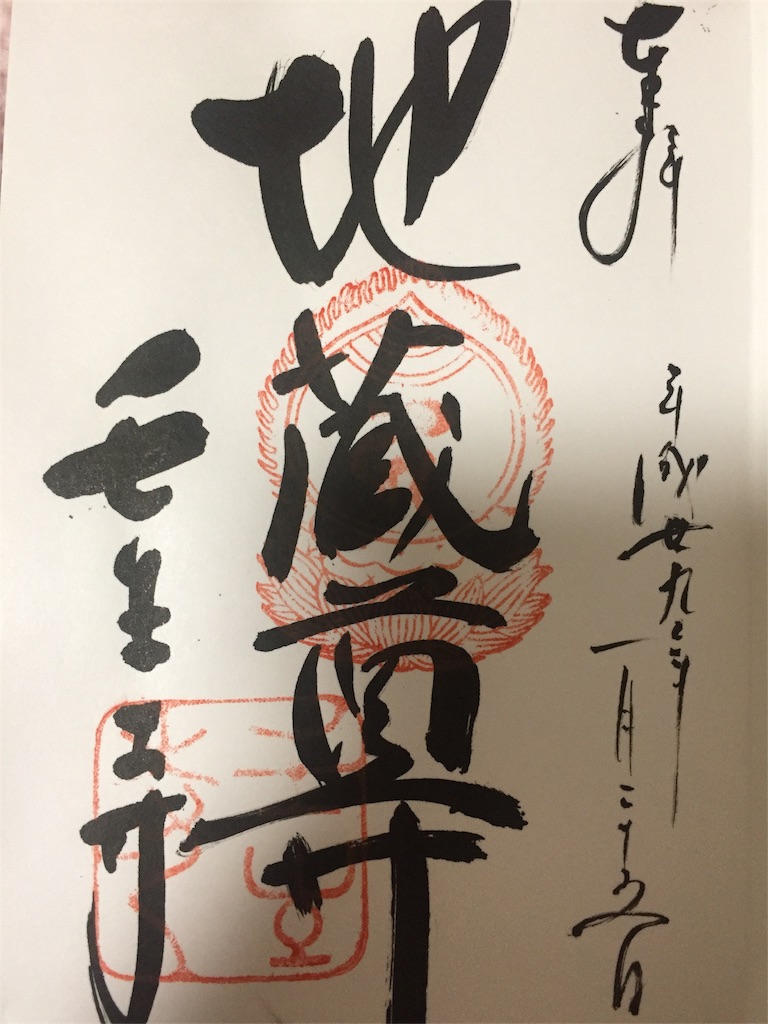 奉拝
平成廿九年一月二十五日
地蔵尊
壬生寺